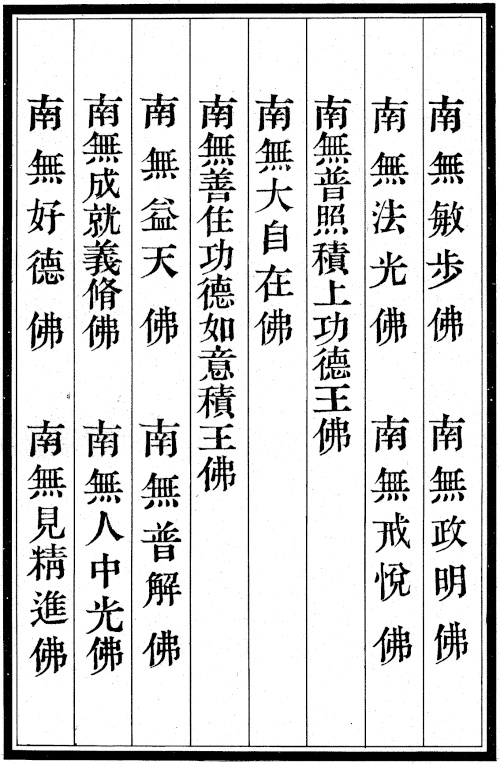 南無敏步佛　南無政明佛
南無法光佛　南無戒悅佛
南無普照積上功德王佛
南無大自在佛
南無善住功德如意積王佛
南無益天佛　南無普解佛
南無成就義脩佛　南無人中光佛
南無好德佛　南無見精進佛